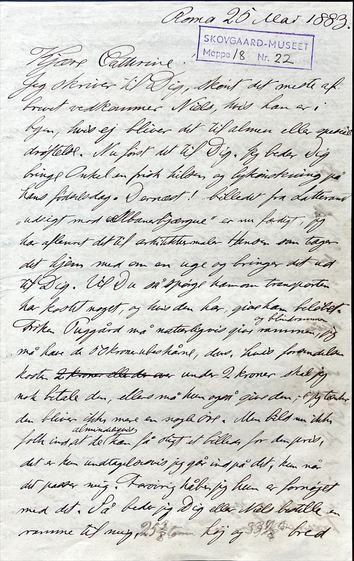 Roma 25 Mai 1883.
SKOVGAARD-MUSEET
Mappe 18 Nr. 22
Kjære Cathrine!
Jeg skriver til Dig, skønt det meste af
brevet vedkommer Niels, hvis han er i
byen, hvis ej bliver det til almen eller
drøftelse. Nu først det til Dig. Jeg beder Dig
bringe Onkel en frisk hilsen og lykønskning på
hans fødselsdag. Dernæst! billedet fra Lateranet
udsigt mod "Albanerbjærgene" er nu færdigt, jeg
har det til arkitektmaler Hansen som tager
det hjem med om en uge og bringer det ud
til Dig. Vil Du så spørge ham om transporten
har kostet noget, og hvis den har, give ham beløbet.
Fröken Buggård må naturligvis give rammen, og
må have de
koste under 2 kroner skal jeg
nok betale den, ellers må hun også give den,
den bliver ikke mere en nogle Øre. Men bild nu ikke
almindelighed
folk ind at de kan få sligt et billede for den pris,
det er kun undtagelsesvis jeg går ind på det, kun når
det passer mig. håber jeg hun er fornøjet
med det. Så beder jeg Dig eller Niels bestille en
ramme til mig, høj og bred